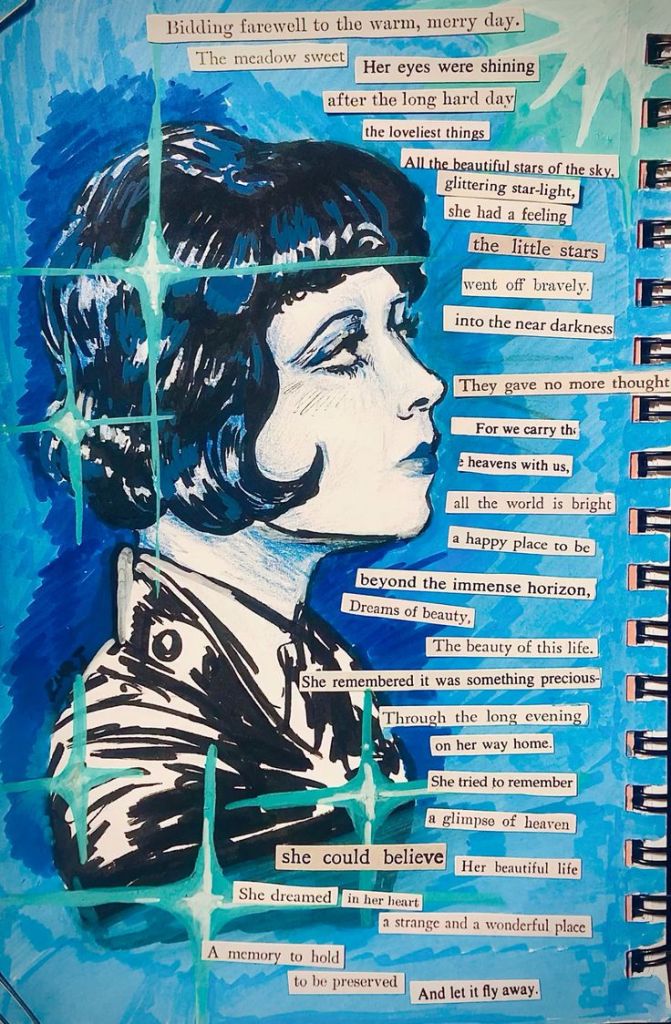 Bidding farewell to the warm, merry day.
The meadow sweet
Her eyes were shining
after the long hard day
the loveliest things
All the beautiful stars of the sky,
glittering star-light,
she had a feeling
the little stars
went off bravely.
into the near darkness
They gave no more thought
For we carry the
heavens with us,
all the world is bright
a happy place to be
beyond the immense horizon,
Dreams of beauty,
The beauty of this life.
She remembered it was something precious-
Through the long evening
on her way home.
She tried to remember
a glimpse of heaven
she could believe
Her beautiful life
She dreamed
in her heart
a strange and a wonderful place
A memory to hold
to be preserved
And let it fly away.